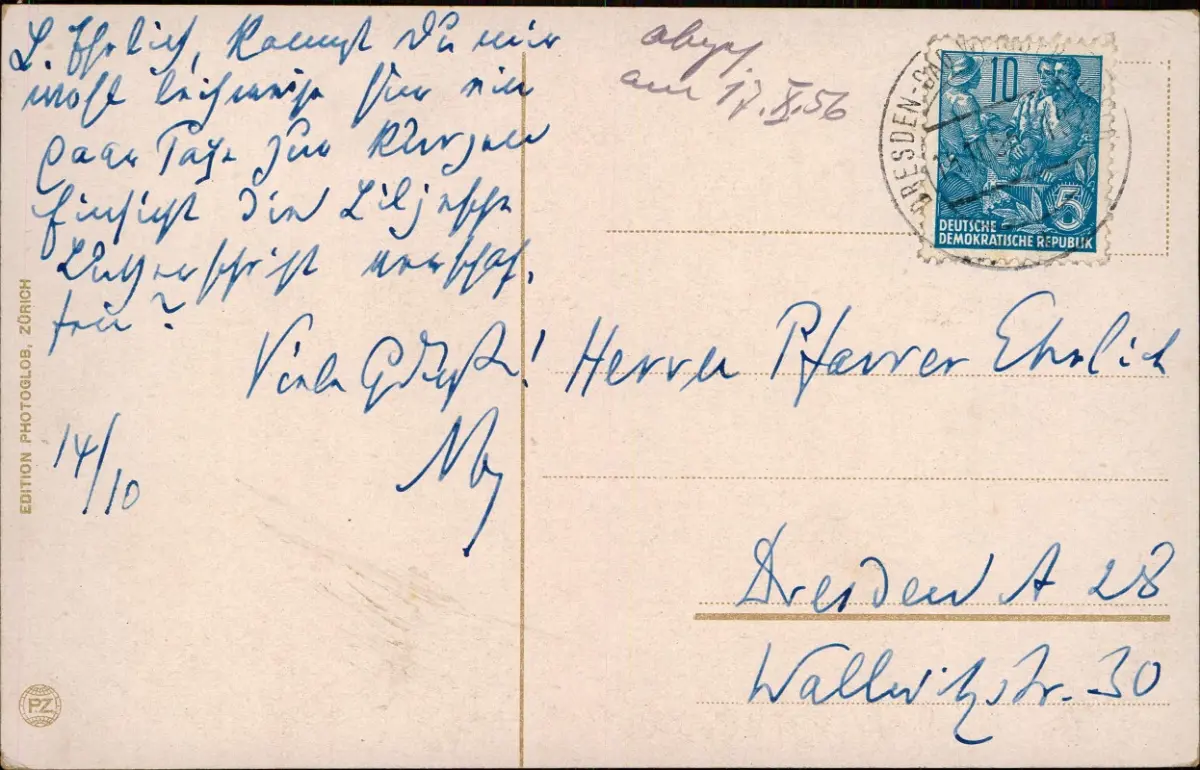 L. Ehrlich, kannst Du mir
wohl leihweise für ein
paar Tage zur kurzen
Einsicht die Liljesche
Lutherschrift verschaf-
fen?
Viele Grüße!
14/10
EDITION PHOTOGLOB, ZÜRICH
PZ
am 17.X.56
DRESDEN
10
5
DEUTSCHE
DEMOKRATISCHE REPUBLIK
Herrn Pfarrer Ehrlich
Dresden A 28
Wallwitzstr. 30